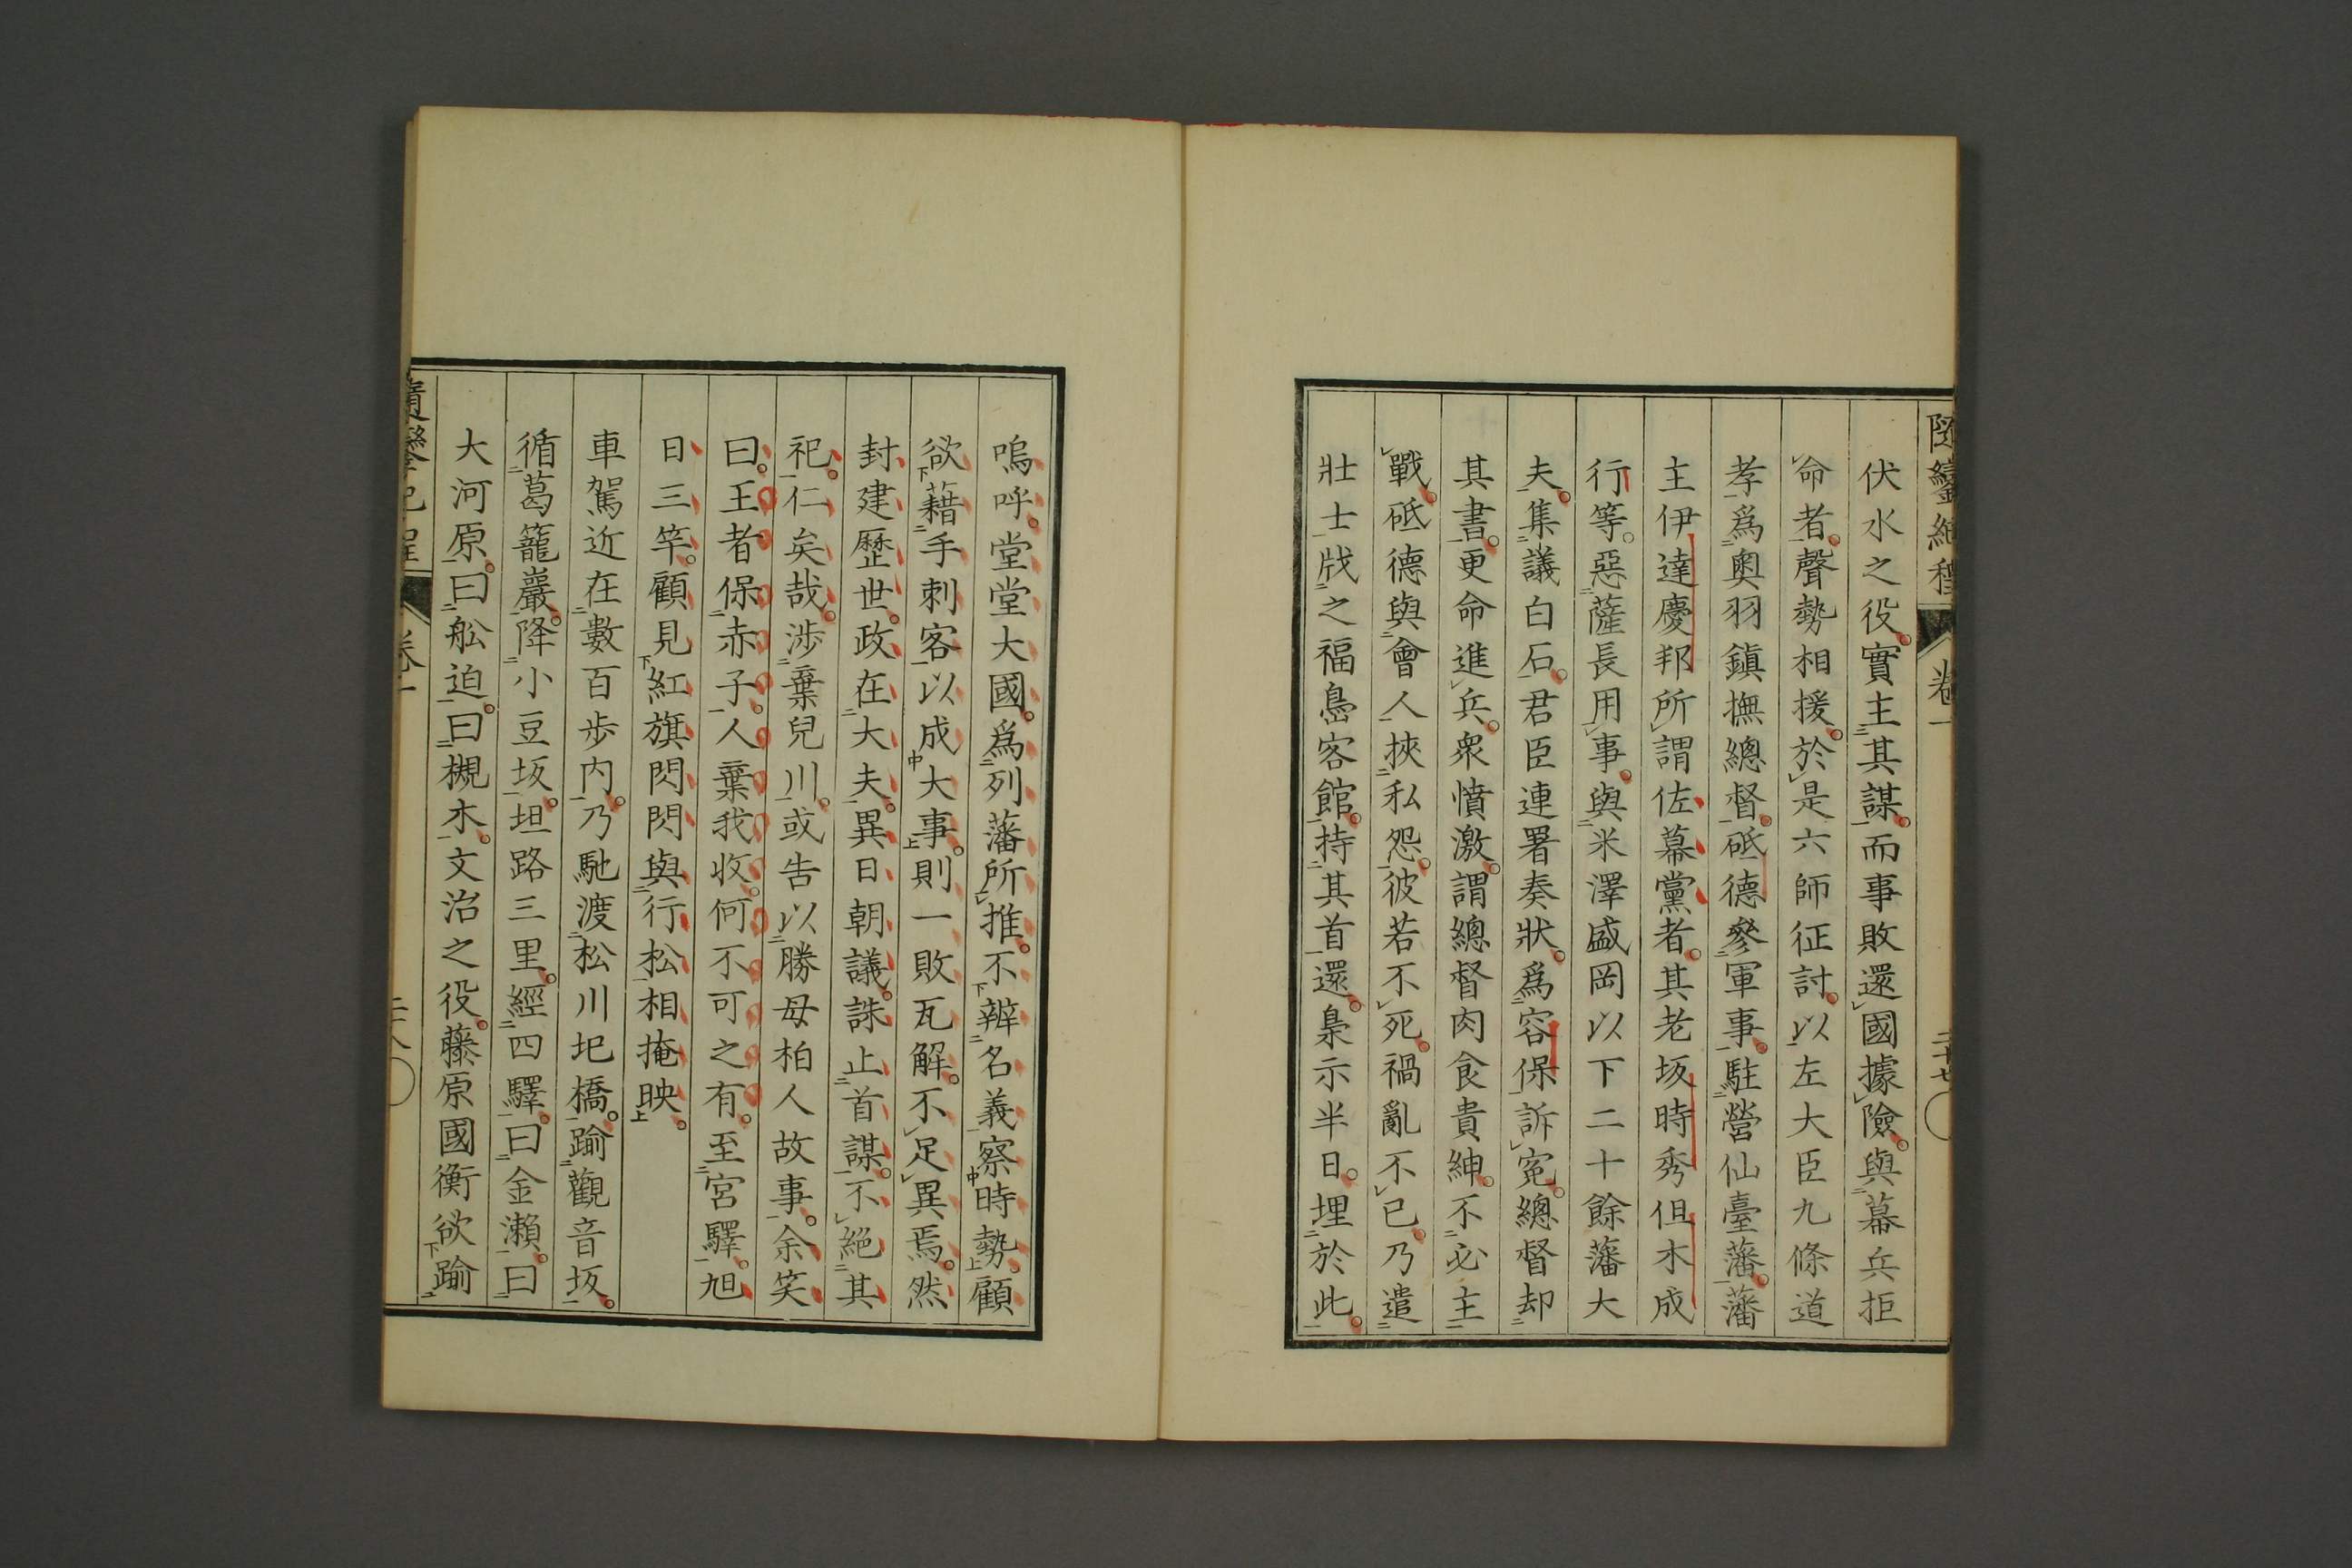 卷一
二十七
伏水之役。實主其謀。而事敗還國據險。與幕兵拒
命者。聲勢相援。於是六師征討。以左大臣九條道
孝爲奧羽鎭撫總督。砥德參軍事。駐營仙臺藩。藩
主伊達慶邦所謂佐幕黨者。其老坂時秀但木成
行等。惡薩長用事。與米澤盛岡以下二十餘藩大
夫。集議白石。君臣連署奏狀。爲容保訴寃。總督却
其書。更命進兵。衆憤激。謂總督肉食貴紳。不必主
戰。砥德與會人挾私怨。彼若不死。禍亂不已。乃遣
壯士戕之福島客館。持其首還。梟示半日。埋於此。
嗚呼。堂堂大國。爲列藩所推。不辨名義察時勢。顧
欲藉手刺客以成大事。則一敗瓦解。不足異焉。然
封建歷世。政在大夫。異日朝議。誅止首謀。不絕其
祀。仁矣哉。涉棄兒川。或告以勝母柏人故事。余笑
曰。王者保赤子。人棄我收。何不可之有。至宮驛。旭
日三竿。顧見紅旗閃閃與行松相掩映。
車駕近在數百步内。乃馳渡松川圯橋。踰觀音坂。
循葛籠巖。降小豆坂。坦路三里。經四驛。曰金瀨。曰
大河原。曰舩迫。曰槻木。文治之役。藤原國衡欲踰
卷一